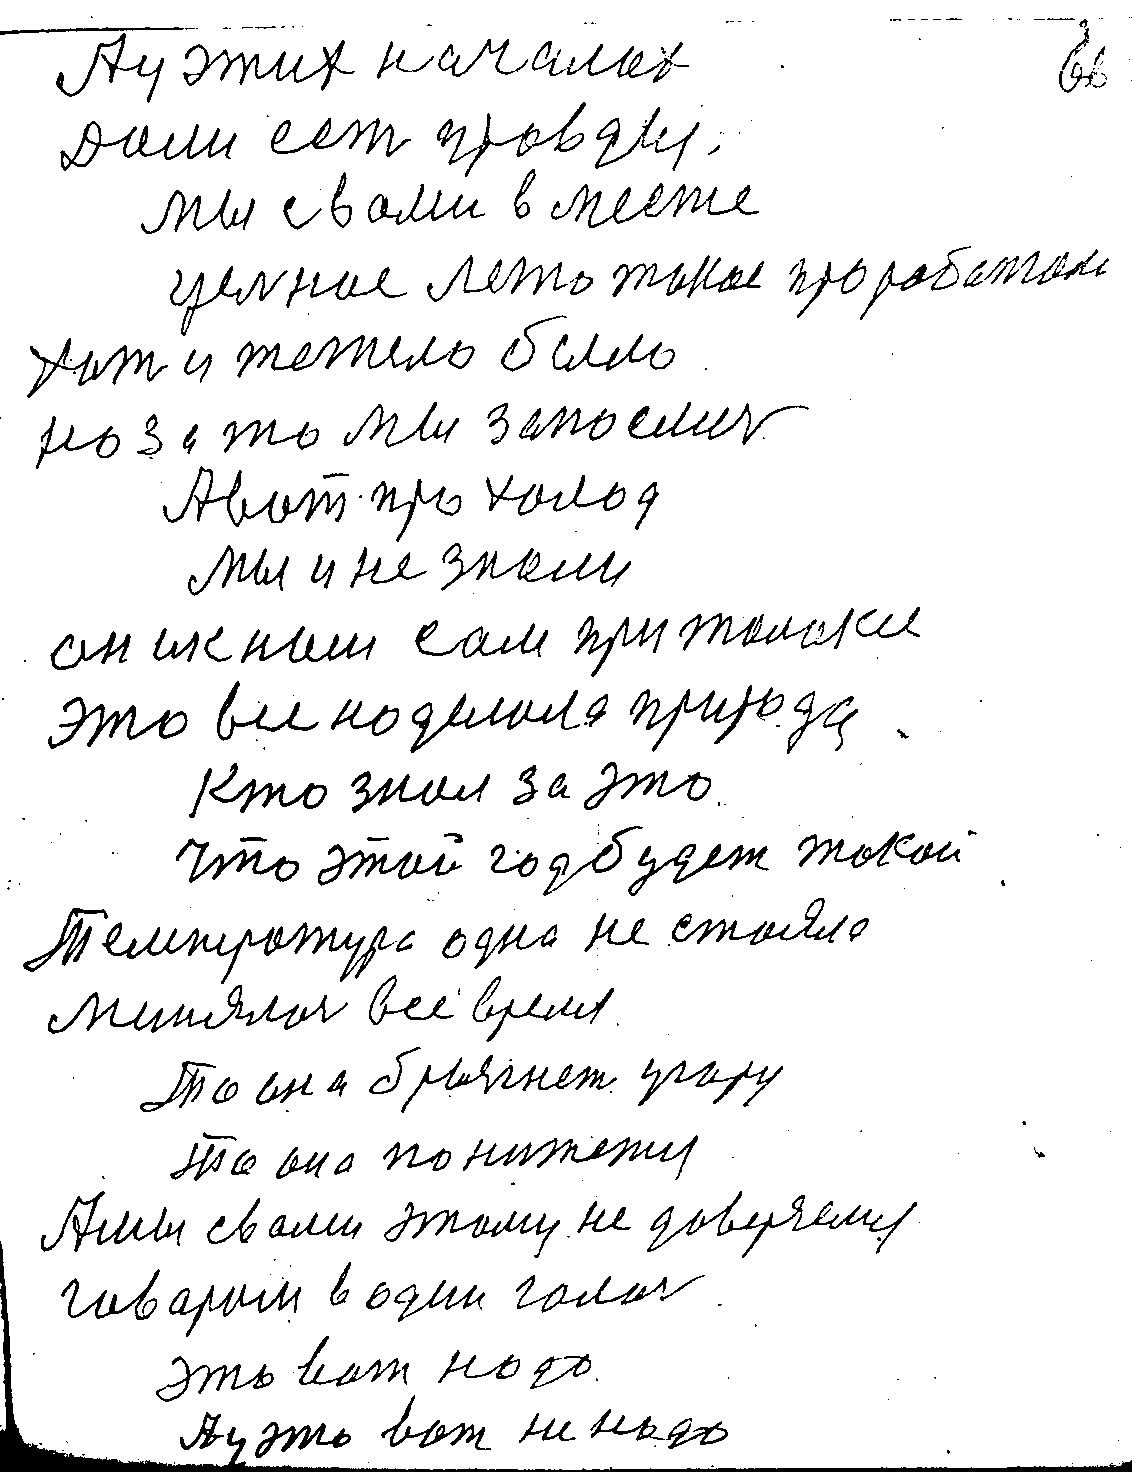 66
Ау этих началах
доли ест правды,
мы с вами вместе
целное лето токое проработали
хот и тежело было
но за то мы запослись
А вот про холод
мы и не знали
он их нам сам притолокал
это все наделола природа
Кто знал за это
что этой год будет токой
Температура одна не стояла
минялась все время
То она брызгнет угору
То она понижется
А мы с вами этому не доверяемся
говарим в один голос
это вот надо
Ау это вот не надо